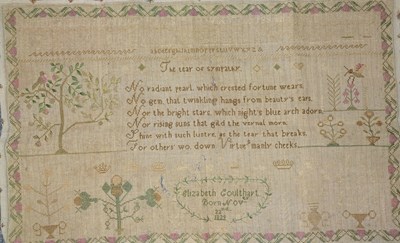 The tear of sympathy
No radiant pearl which crested fortune wears
No gem that twinkling hangs from beauty's ears
Nor the bright stars which night's blue arch adorn
Nor rising suns that gild the vernal morn
Shine with such lustre as the tear that breaks
For others wo down Virtue's manly cheeks
Elizabeth Coulthart
Born Nov